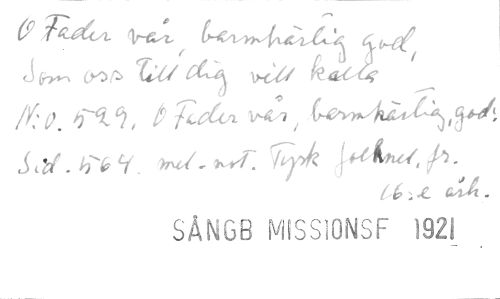 O Fader vår, barmhärtig god,
Som oss till dig vill kalla
N:o. 529. O Fader vår, barmhärtig, god:
Sid. 564. mel-not. Tysk folkmel. fr.
16:e årh.
SÅNGB MISSIONSF 1921